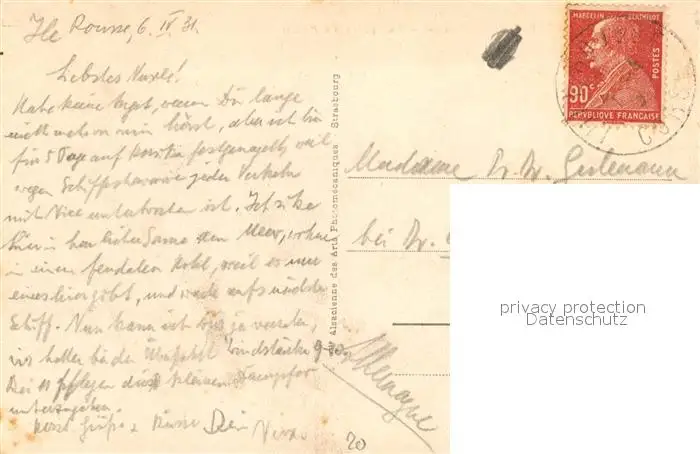 Ile Rousse, 6. IV 31.
Liebstes
Habe keine Angst, wenn Du lange
nichts mehr von mir hörst, aber ich bin
für 5 Tage auf Korsika festgenagelt, weil
wegen Schiffshavarie jeder Verkehr
mit Nice unterbrochen ist. Ich sitze
hier in Sonne am Meer, wohne
in einem feudalen Hotel, weil es nur
eines hier gibt, und warte aufs nächste
Schiff. Nun kann ich bis ja warten,
wir hatten bei der Überfahrt Windstärke 9-10.
Bei 11 pflegen diese kleinen Dampfer
unterzugehen.
Grüße + Küsse Dein
20
Alsacienne des Arts Photomécaniques Strasbourg
MARCELIN BERTHELOT
POSTES
90c
REPVBLIQVE FRANÇAISE
CORSE
Madame Dr. Dr.
bei Dr.
Allemagne
privacy protection
Datenschutz